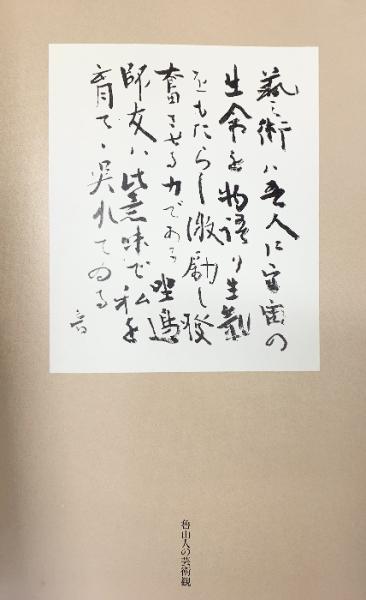 藝術ハ吾人に宇宙の
生命を物語り生氣
をもたらし激励し發
奮させる力である
師友ハ此意味で私を
育て、呉れてゐる
魯山人の芸術観